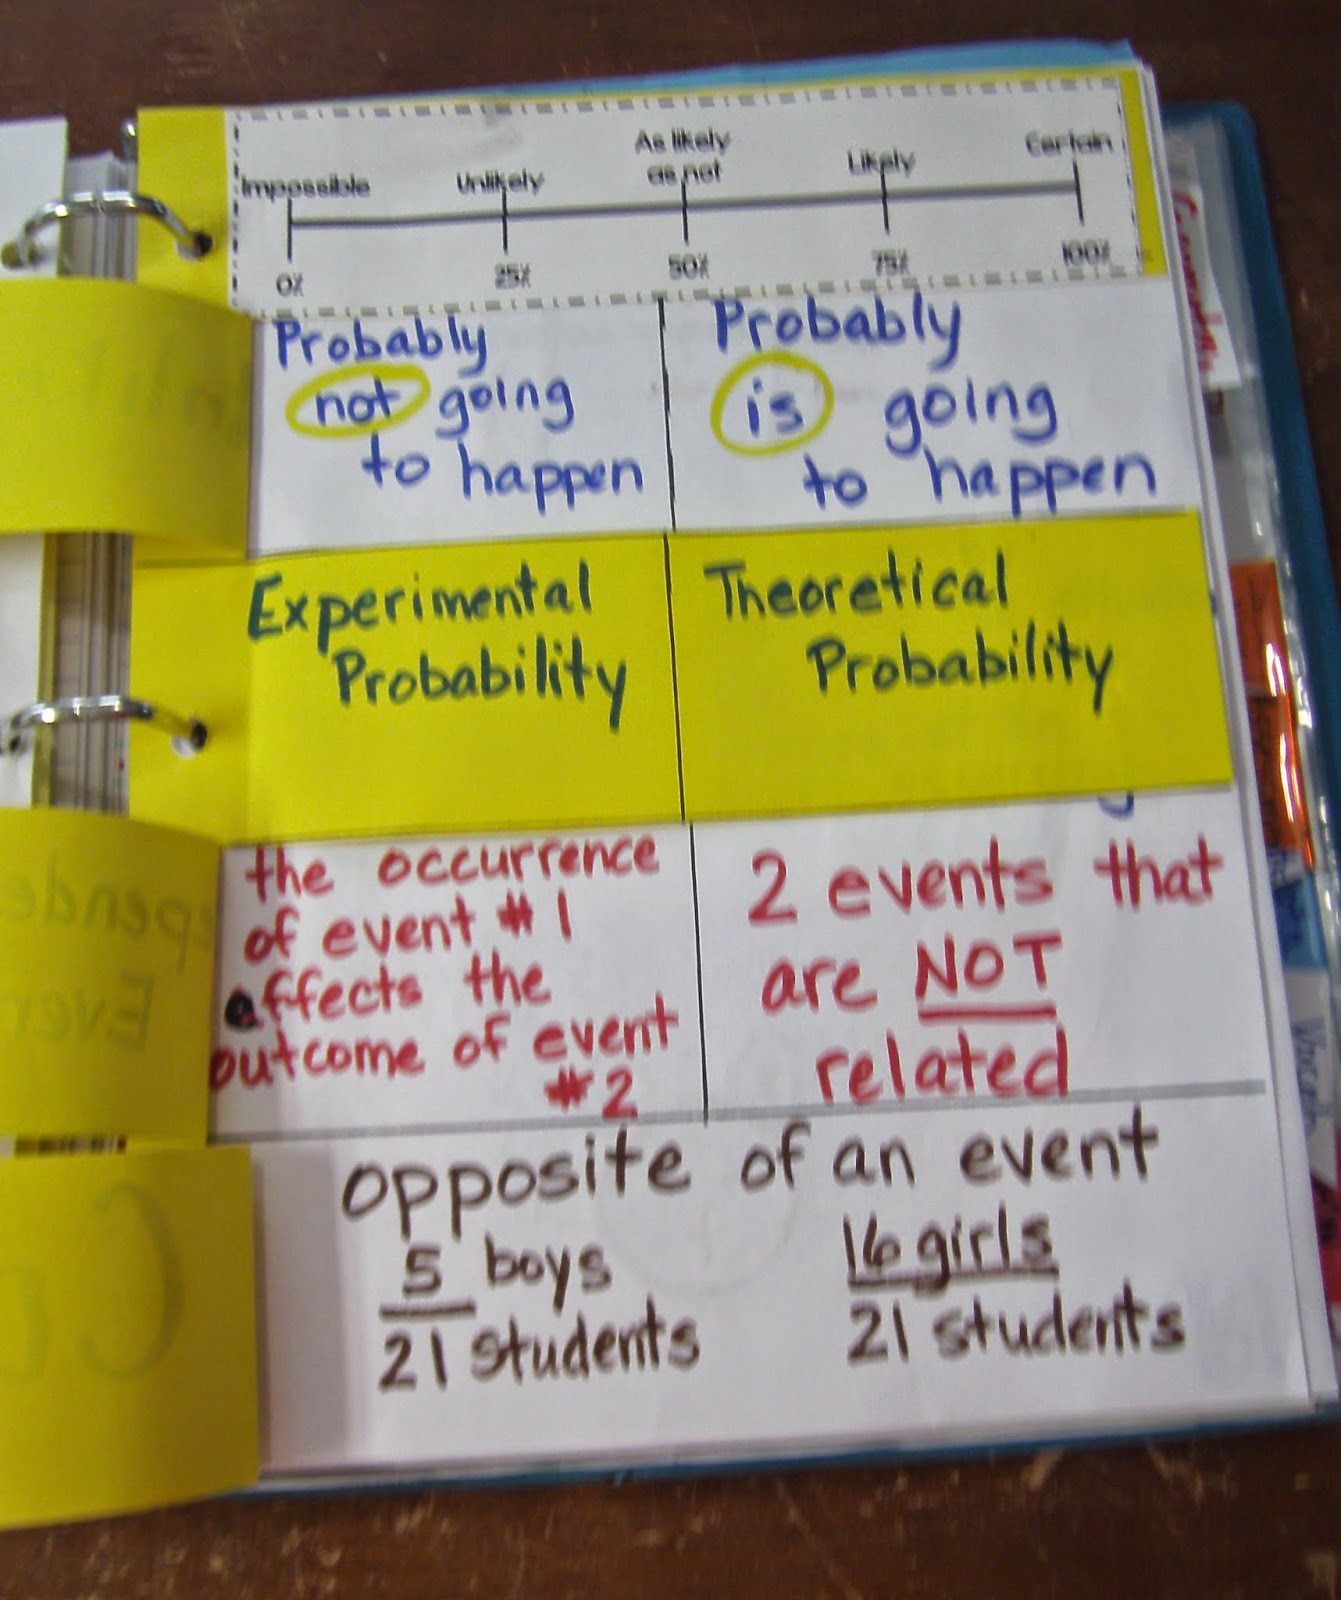 As likely
Impossible Unlikely as not Likely Certain
0% 25% 50% 75% 100%
Probably
not going
to happen
Probably
is going
to happen
Experimental
Probability
Theoretical
Probability
the occurrence
of event #1
affects the
outcome of event
#2
2 events that
are NOT
related
opposite of an event
5 boys
21 students
16 girls
21 students